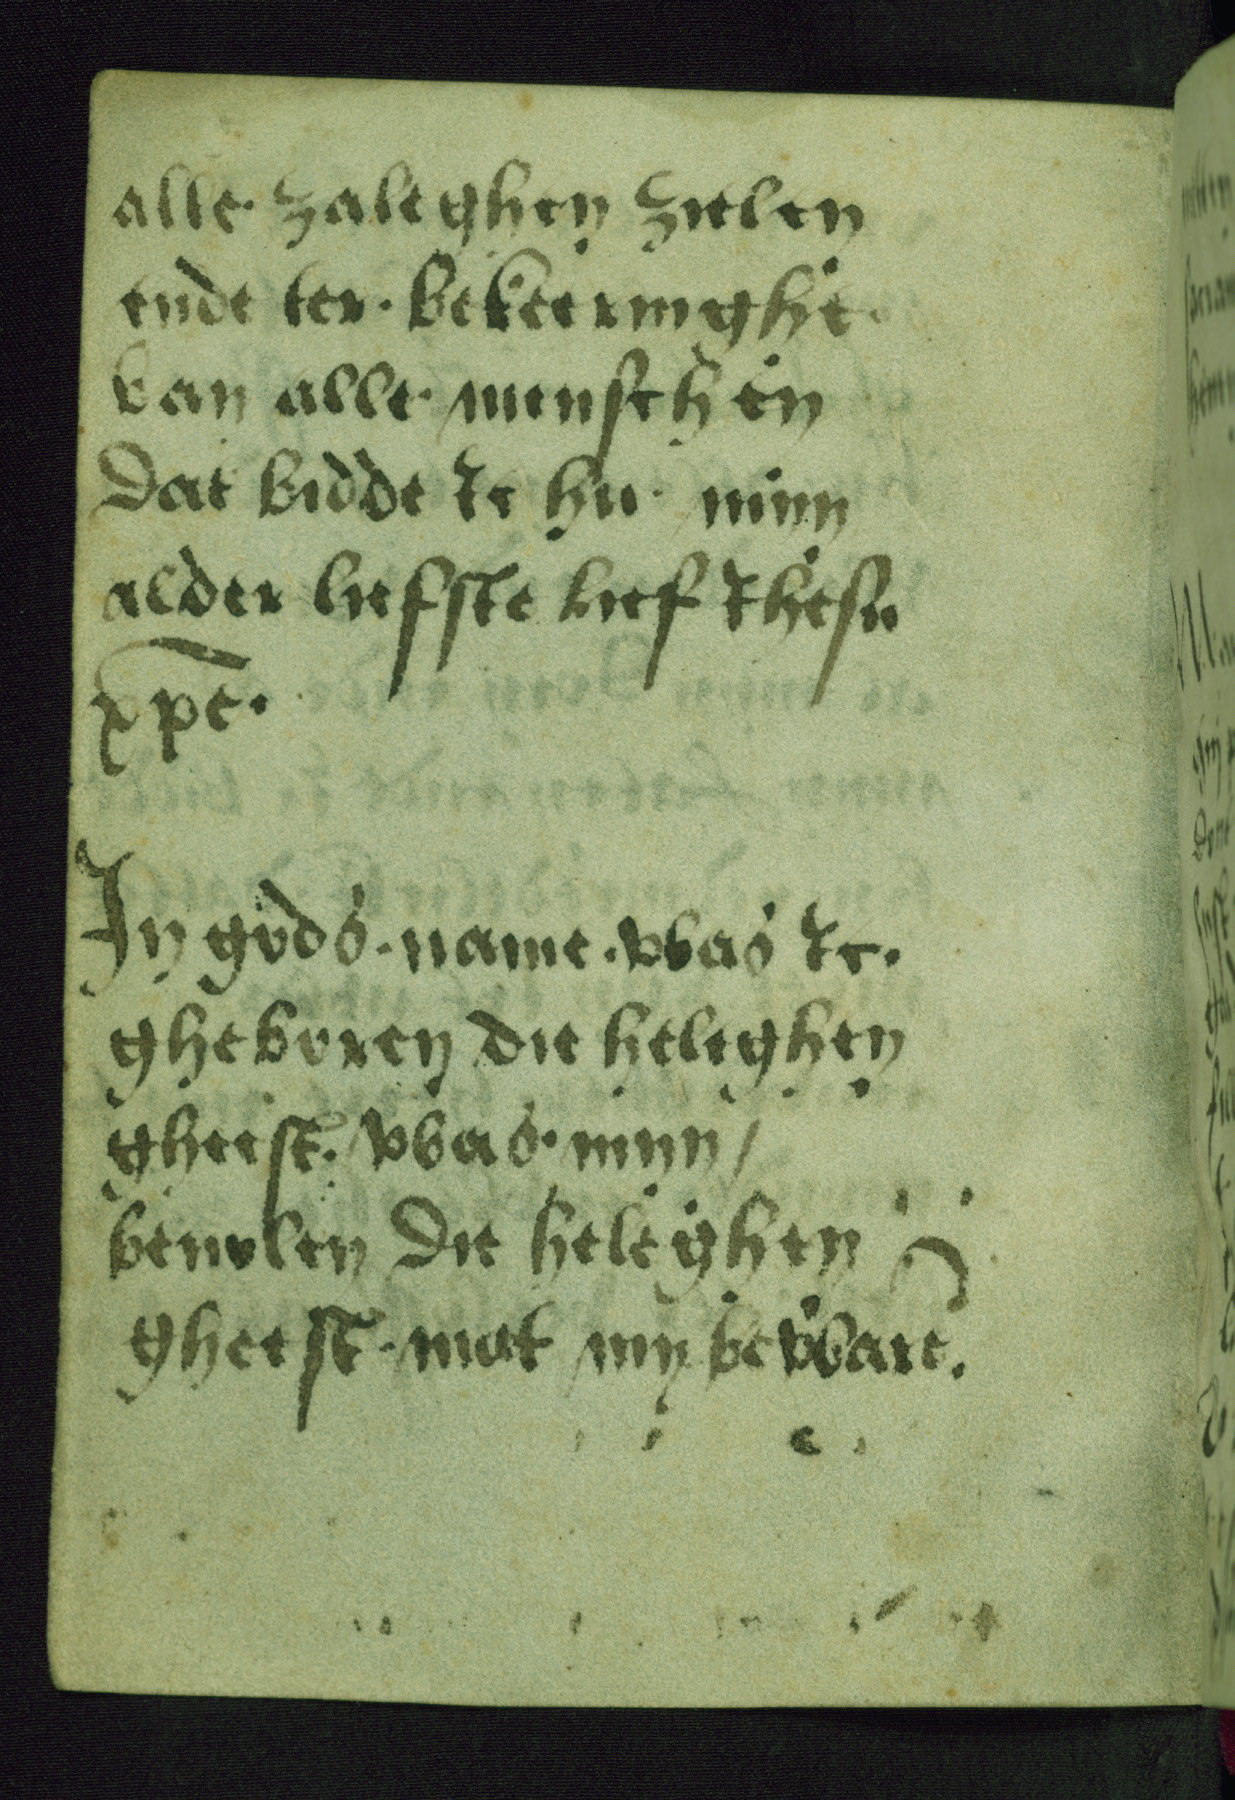 alle· zaleghen zielen
ende ter· bekeeringhe·
van alle· menschen
Dat bidde Ic hu· mijn
alder liefste lief Ihesu
xp̄e·
In gods· name· was Ic·
gheboren die heleghen
gheest· was· mijn /
beuolen Die heleghen
gheest· mot my beware.